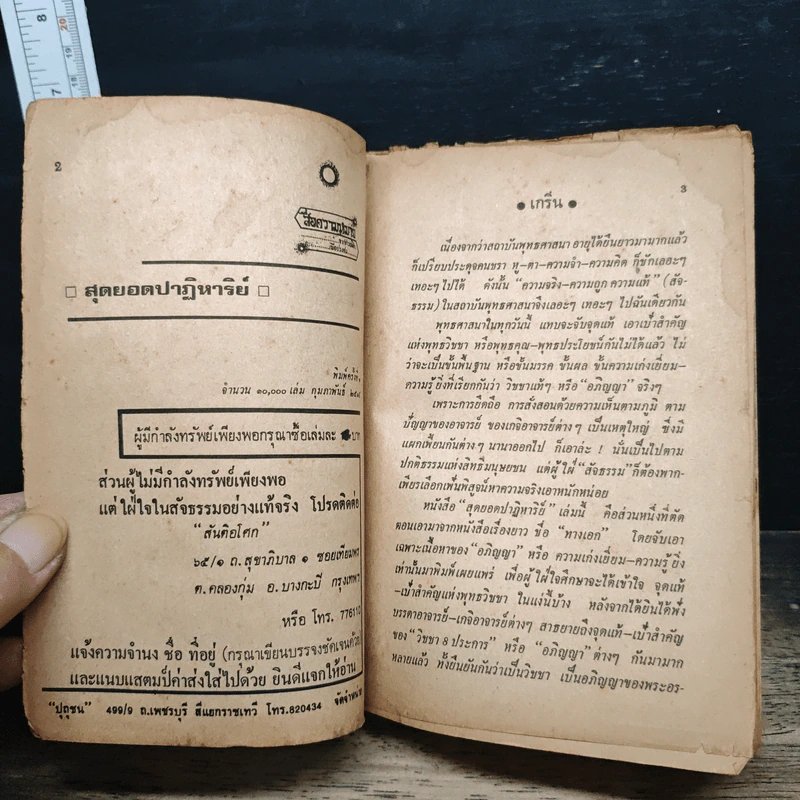 8
20
19
18
7
2
สื่อความหมาย
□ สุดยอดปาฏิหาริย์ □
พิมพ์ครั้งที่
จำนวน ๑๐,๐๐๐ เล่ม กุมภาพันธ์
ผู้มีกำลังทรัพย์เพียงพอกรุณาซื้อเล่มละ บาท
ส่วนผู้ไม่มีกำลังทรัพย์เพียงพอ
แต่ใฝ่ใจในสัจธรรมอย่างแท้จริง โปรดติดต่อ
"สันติอโศก"
๖๕/๑ ถ.สุขาภิบาล ๑ ซอยเทียมพร
ต.คลองกุ่ม อ.บางกะปิ กรุงเทพฯ
หรือ โทร.
แจ้งความจำนง ชื่อ ที่อยู่ (กรุณาเขียนบรรจงชัดเจนด้วย)
และแนบแสตมป์ค่าส่งใส่ไปด้วย ยินดีแจกให้อ่าน
"ปุถุชน" 499/9 ถ.เพชรบุรี สี่แยกราชเทวี โทร.820434 จัดจำหน่าย
3
● เกริ่น ●
เนื่องจากว่าสถาบันพุทธศาสนา อายุได้ยืนยาวมามากแล้ว
ก็เปรียบประดุจคนชรา หู–ตา–ความจำ–ความคิด ก็ชักเลอะๆ
เทอะๆ ไปได้ ดังนั้น "ความจริง–ความถูก ความแท้" (สัจ-
ธรรม) ในสถาบันพุทธศาสนาจึงเลอะๆ เทอะๆ ไปฉันเดียวกัน
พุทธศาสนาในทุกวันนี้ แทบจะจับจุดแท้ เอาเป้าสำคัญ
แห่งพุทธวิชชา หรือพุทธคุณ–พุทธประโยชน์กันไม่ได้แล้ว ไม่
ว่าจะเป็นขั้นพื้นฐาน หรือขั้นมรรค ขั้นผล ขั้นความเก่งเยี่ยม–
ความรู้ยิ่งที่เรียกกันว่า วิชชาแท้ๆ หรือ "อภิญญา" จริงๆ
เพราะการยึดถือ การสั่งสอนด้วยความเห็นตามภูมิ ตาม
ปัญญาของอาจารย์ ของเกจิอาจารย์ต่างๆ เป็นเหตุใหญ่ ซึ่งมี
แผกเพี้ยนกันต่างๆ นานาออกไป ก็เอาล่ะ ! นั่นเป็นไปตาม
ปกติธรรมแห่งสิทธิ์มนุษยชน แต่ผู้ใฝ่ "สัจธรรม" ก็ต้องพาก-
เพียรเลือกเฟ้นพิสูจน์หาความจริงเอาหนักหน่อย
หนังสือ "สุดยอดปาฏิหาริย์" เล่มนี้ คือส่วนหนึ่งที่ตัด
ตอนเอามาจากหนังสือเรื่องยาว ชื่อ "ทางเอก" โดยจับเอา
เฉพาะเนื้อหาของ "อภิญญา" หรือ ความเก่งเยี่ยม–ความรู้ยิ่ง
เท่านั้นมาพิมพ์เผยแพร่ เพื่อผู้ใฝ่ใจศึกษาจะได้เข้าใจ จุดแท้
–เป้าสำคัญแห่งพุทธวิชชา ในแง่นี้บ้าง หลังจากได้ยินได้ฟัง
บรรดาอาจารย์–เกจิอาจารย์ต่างๆ สาธยายถึงจุดแท้–เป้าสำคัญ
ของ "วิชชา 8 ประการ" หรือ "อภิญญา" ต่างๆ กันมามาก
หลายแล้ว ทั้งยืนยันกันว่าเป็นวิชชา เป็นอภิญญาของพระอร-